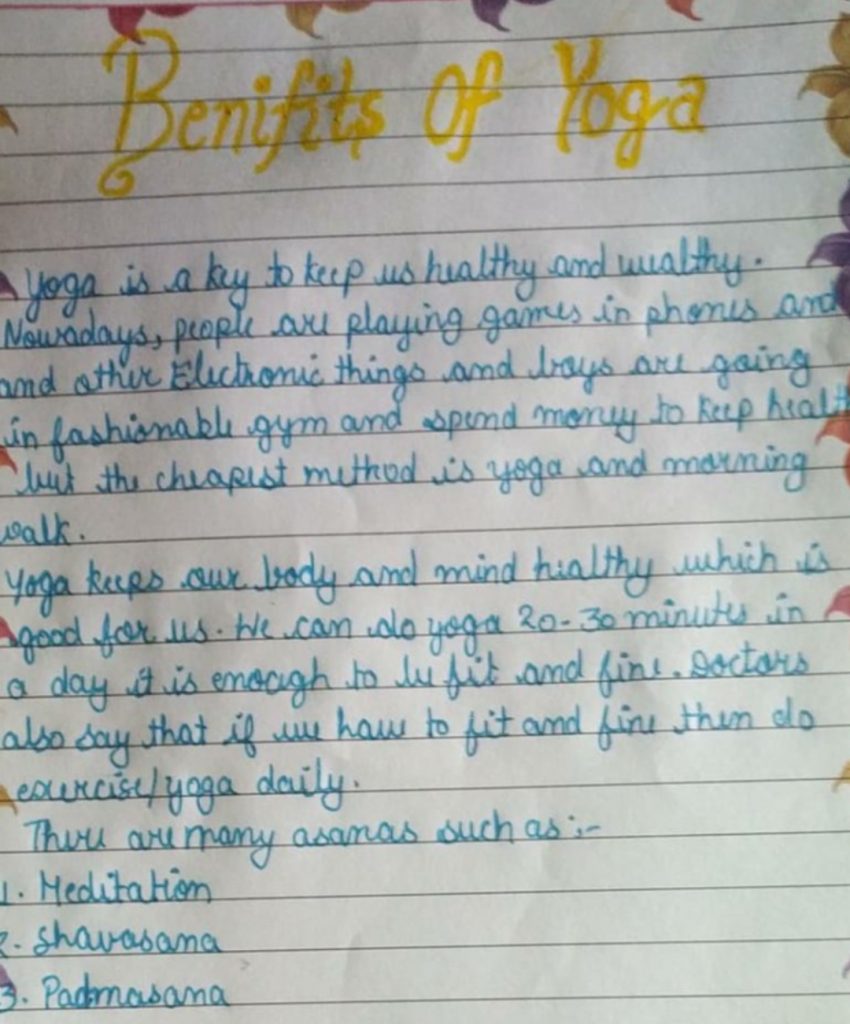 Benifits Of Yoga
Yoga is a key to keep us healthy and wealthy.
Nowadays, people are playing games in phones and
and other Electronic things and boys are going
in fashionable gym and spend money to keep healt
but the cheapest method is yoga and morning
walk.
Yoga keeps our body and mind healthy which is
good for us. We can do yoga 20-30 minutes in
a day it is enough to be fit and fine. Doctors
also say that if we have to fit and fine then do
exercise/yoga daily.
There are many asanas such as :-
1. Meditation
2. Shavasana
3. Padmasana